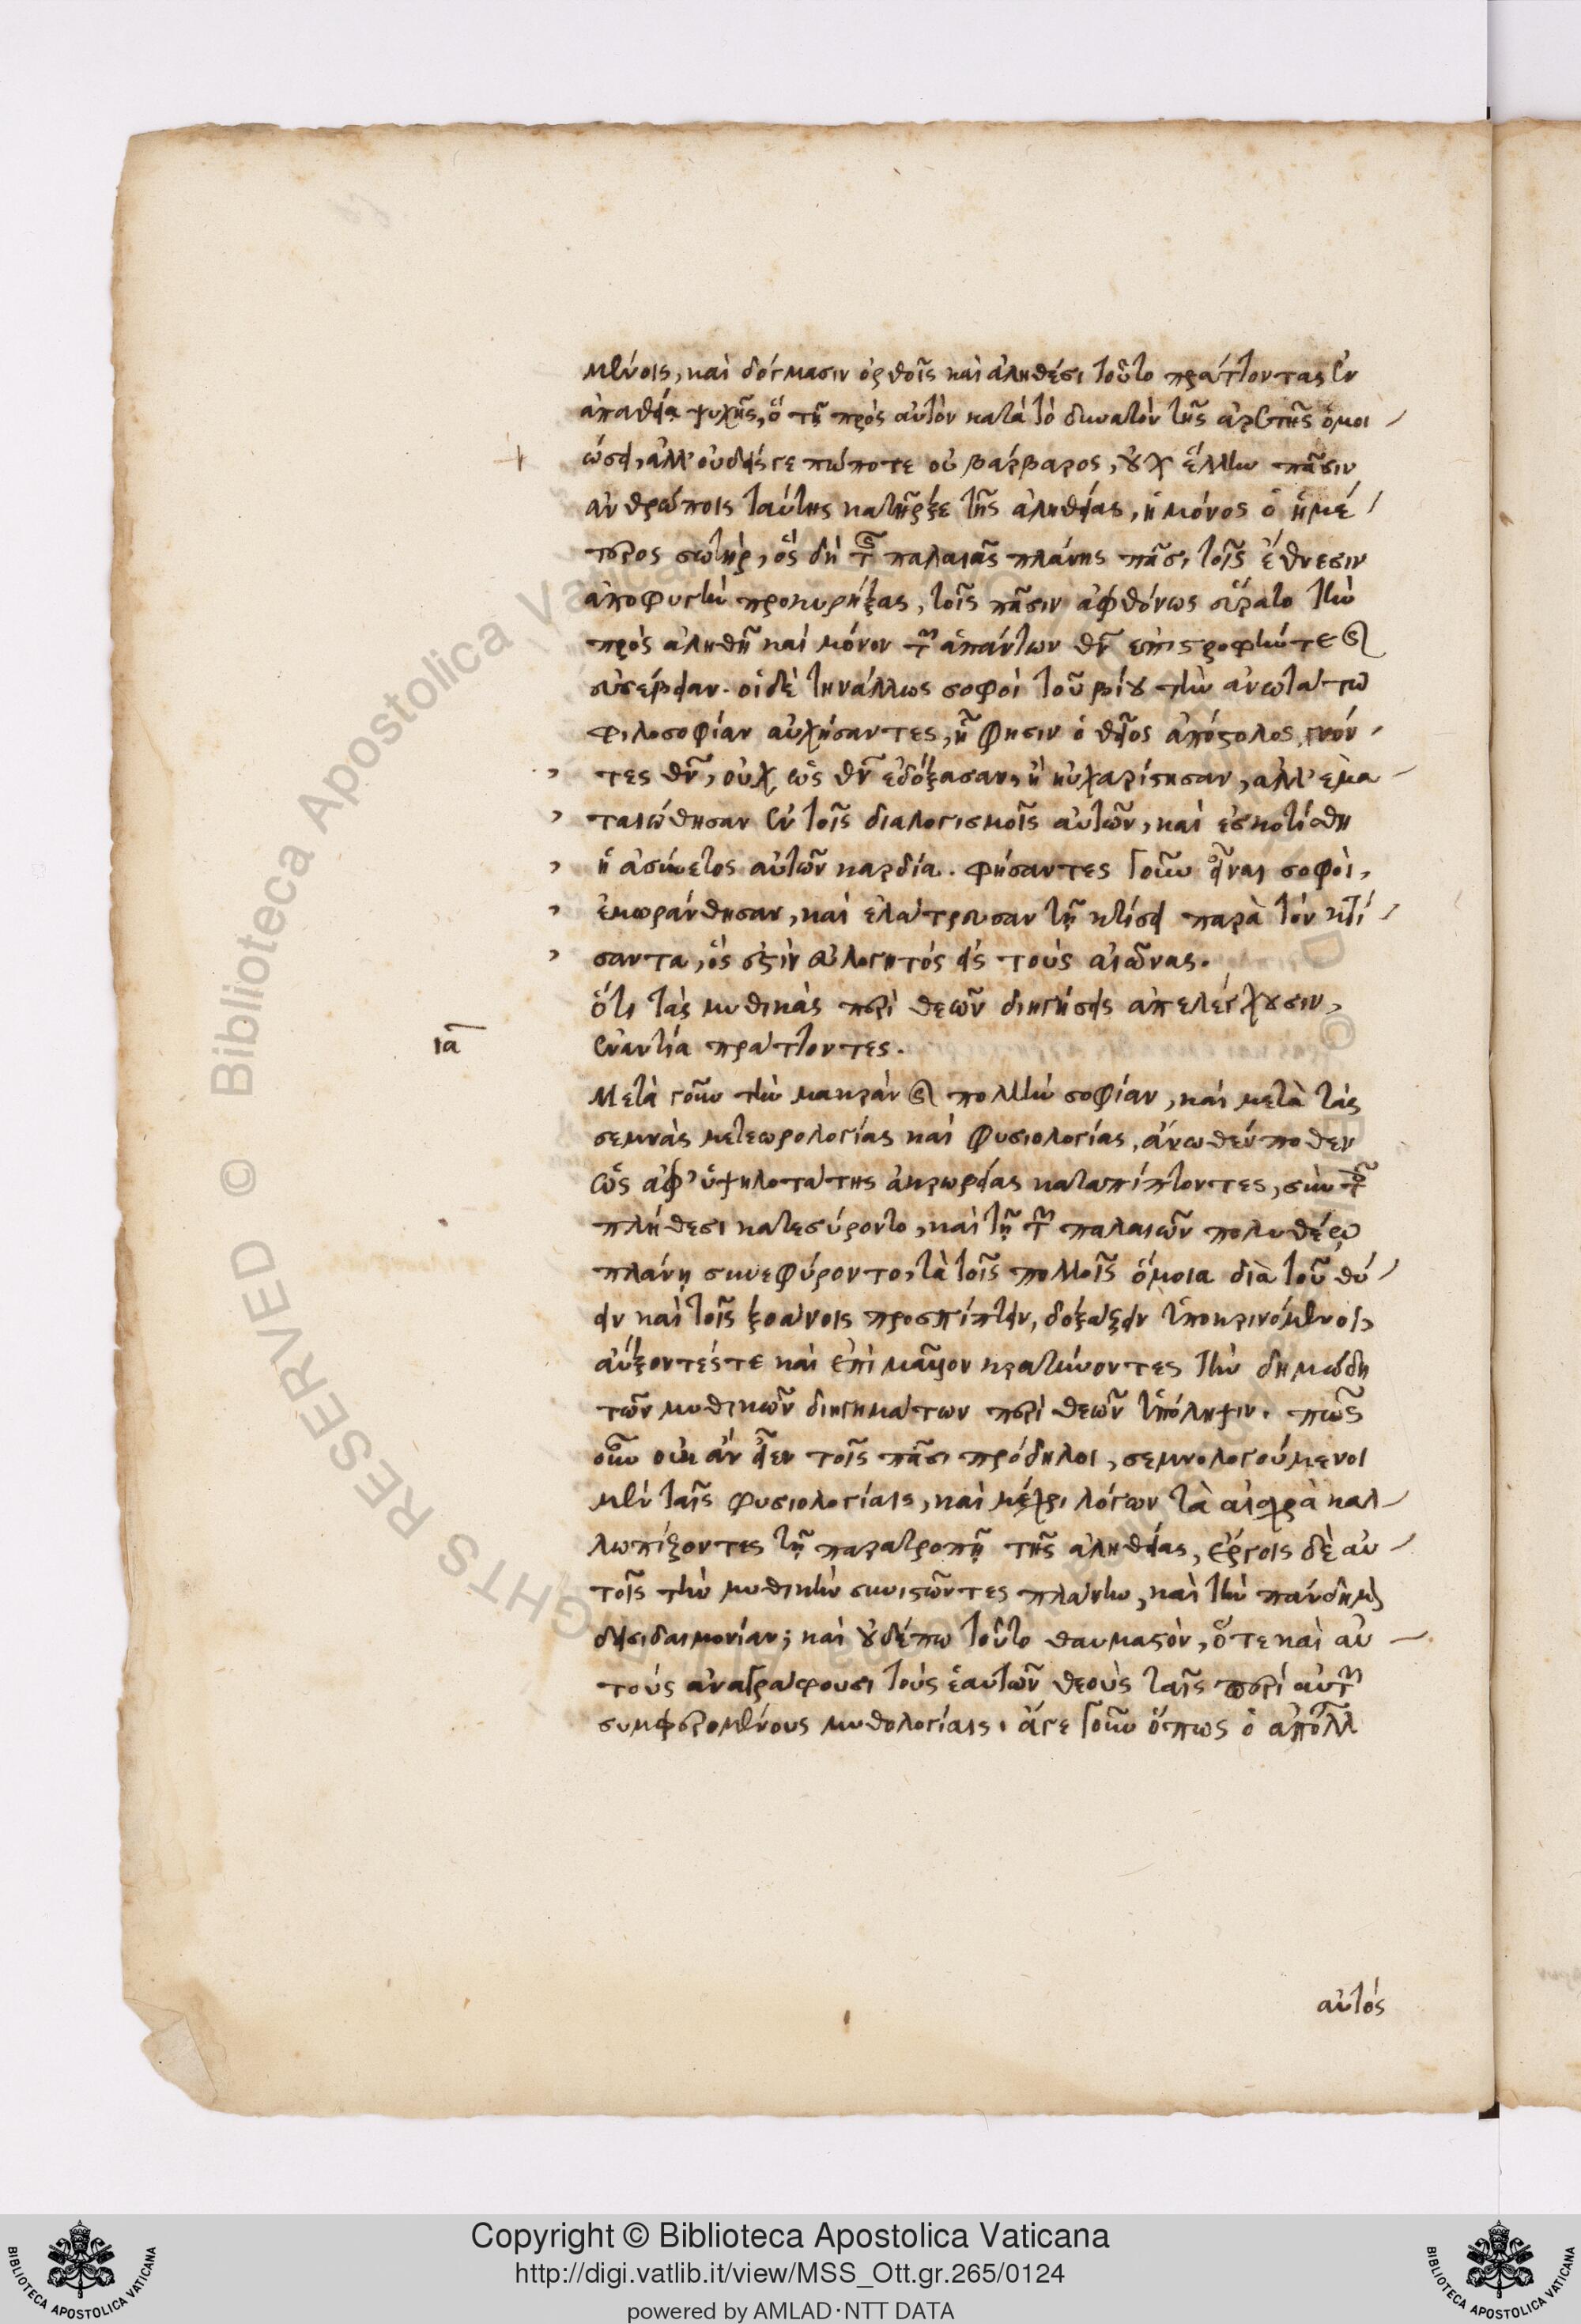 μένοις, καὶ δόγμασιν ὀρθοῖς καὶ ἀληθέσι τοῦτο πράττοντας ἐν
ἀπαθείᾳ ψυχῆς, καὶ τῇ πρὸς αὐτὸν κατὰ τὸ δυνατὸν τῆς ἀρετῆς ὁμοι-
ώσει, ἀλλ' οὐδείς γε πώποτε οὐ βάρβαρος, οὐχ ἕλλην πᾶσιν
ἀνθρώποις ταύτης κατῆρξε τῆς ἀληθείας, ἢ μόνος ὁ ἡμέ-
τερος σωτὴρ, ὃς δὴ τῆς παλαιᾶς πλάνης πᾶσι τοῖς ἔθνεσιν
ἀποφυγὴν προκηρύξας, τοῖς πᾶσιν ἀφθόνως εὕρατο τὴν
πρὸς ἀληθῆ καὶ μόνον τῶν ἁπάντων θν ἐπιστροφήν τε καὶ
εὐσέβειαν. οἱ δὲ τηνάλλως σοφοὶ τοῦ βίου τὴν ἀνωτάτω
φιλοσοφίαν αὐχήσαντες, ᾗ φησιν ὁ θεῖος ἀπόστολος, γνόν-
τες θν, οὐχ ὡς θν ἐδόξασαν, ἢ ηὐχαρίστησαν, ἀλλ' ἐμα-
ταιώθησαν ἐν τοῖς διαλογισμοῖς αὐτῶν, καὶ ἐσκοτίσθη
ἡ ἀσύνετος αὐτῶν καρδία. φήσαντες γοῦν εἶναι σοφοὶ,
ἐμωράνθησαν, καὶ ἐλάτρευσαν τῇ κτίσει παρὰ τὸν κτί-
σαντα, ὅς ἐστιν εὐλογητὸς εἰς τοὺς αἰῶνας.
ὅτι τὰς μυθικὰς περὶ θεῶν διηγήσεις ἀπελέγχουσιν,
ια ἐναντία πράττοντες.
Μετὰ γοῦν τὴν μακρὰν καὶ πολλὴν σοφίαν, καὶ μετὰ τὰς
σεμνὰς μετεωρολογίας καὶ φυσιολογίας, ἄνωθέν ποθεν
ὡς ἀφ' ὑψηλοτάτης ἀκρωρείας καταπίπτοντες, σὺν τοῖς
πλήθεσι κατεσύροντο, καὶ τῇ τῶν παλαιῶν πολυθέῳ
πλάνῃ συνεφύροντο, τὰ τοῖς πολλοῖς ὅμοια διὰ τοῦ θύ-
ειν καὶ τοῖς ξοάνοις προσπίπτειν, δοξάζειν ὑποκρινόμενοι,
αὔξοντές τε καὶ ἐπὶ μᾶλλον κρατύνοντες τὴν δημώδη
τῶν μυθικῶν διηγημάτων περὶ θεῶν ὑπόληψιν. πῶς
οὖν οὐκ ἂν εἶεν τοῖς πᾶσι πρόδηλοι, σεμνολογούμενοι
μὲν ταῖς φυσιολογίαις, καὶ μέχρι λόγων τὰ αἰσχρὰ καλ-
λωπίζοντες τῇ παρατροπῇ τῆς ἀληθείας, ἔργοις δὲ αὐ-
τοῖς τὴν μυθικὴν συνιστῶντες πλάνην, καὶ τὴν πάνδημον
δεισιδαιμονίαν; καὶ οὐδέπω τοῦτο θαυμαστὸν, ὅτε καὶ αὐ-
τοὺς ἀναγράφουσι τοὺς ἑαυτῶν θεοὺς ταῖς περὶ αὐτῶν
συμφερομένους μυθολογίαις. ἄγε γοῦν ὅπως ὁ ἀπόλλ
αὐτός
Copyright © Biblioteca Apostolica Vaticana
http://digi.vatlib.it/view/MSS_Ott.gr.265/0124
powered by AMLAD·NTT DATA